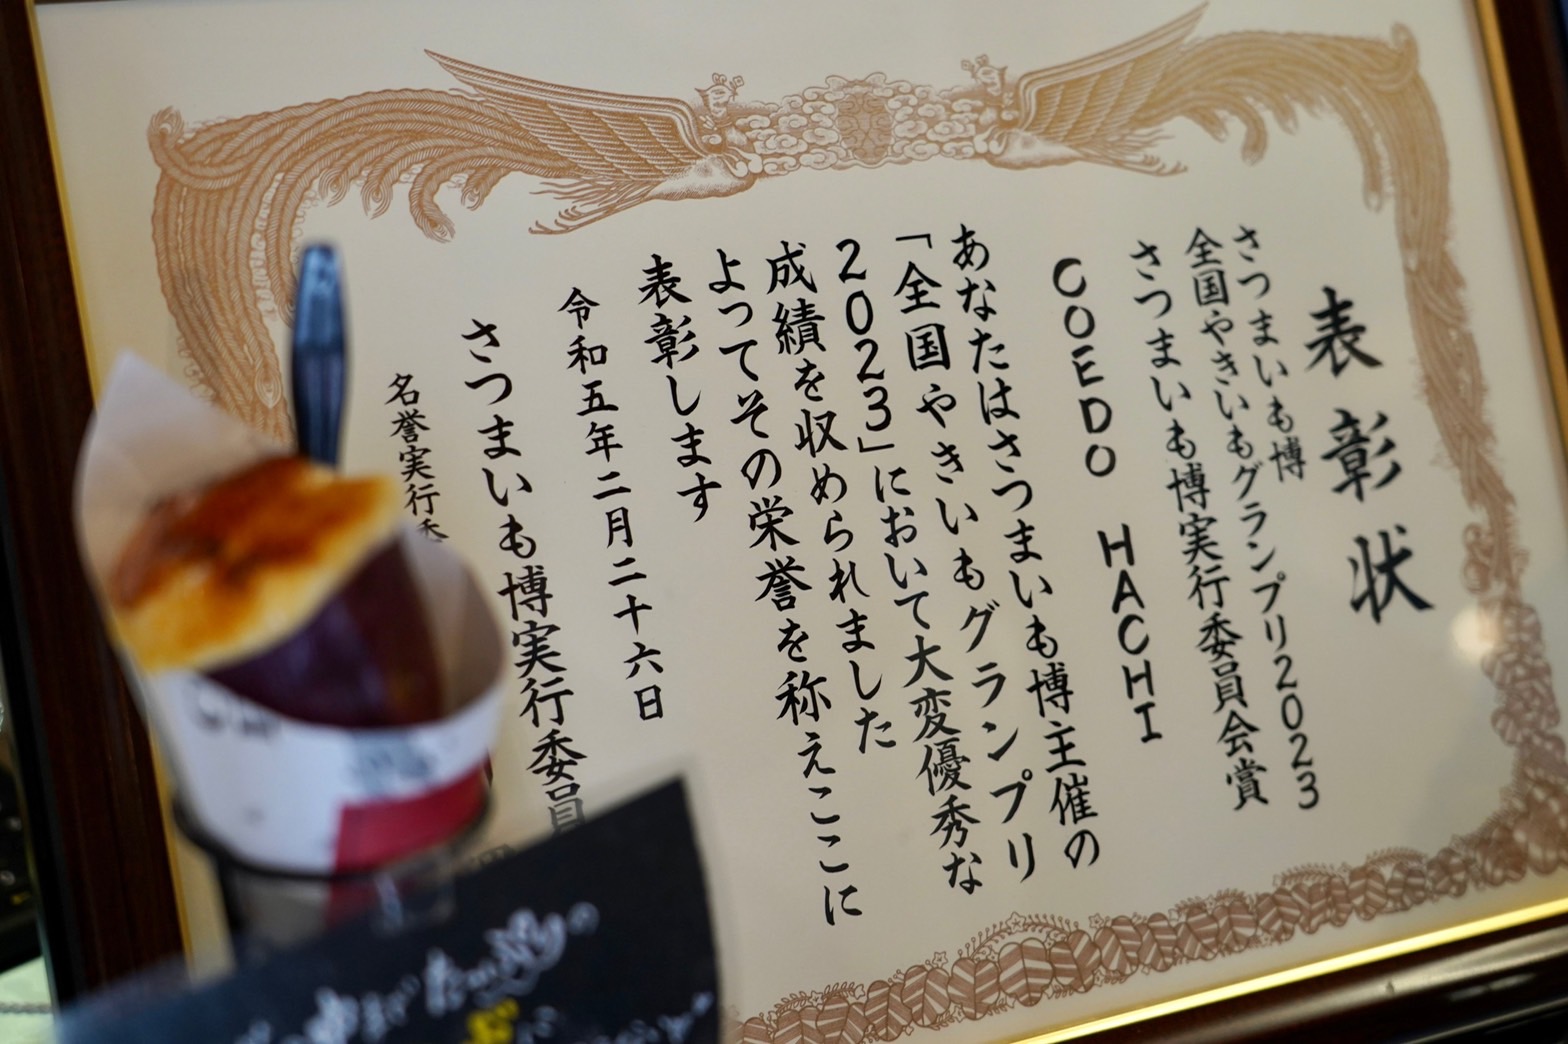 表彰状
さつまいも博
全国やきいもグランプリ2023
さつまいも博実行委員会賞
COEDO HACHI
あなたはさつまいも博主催の
「全国やきいもグランプリ
2023」において大変優秀な
成績を収められました
よってその栄誉を称えここに
表彰します
令和五年二月二十六日
さつまいも博実行委員
名誉実行委